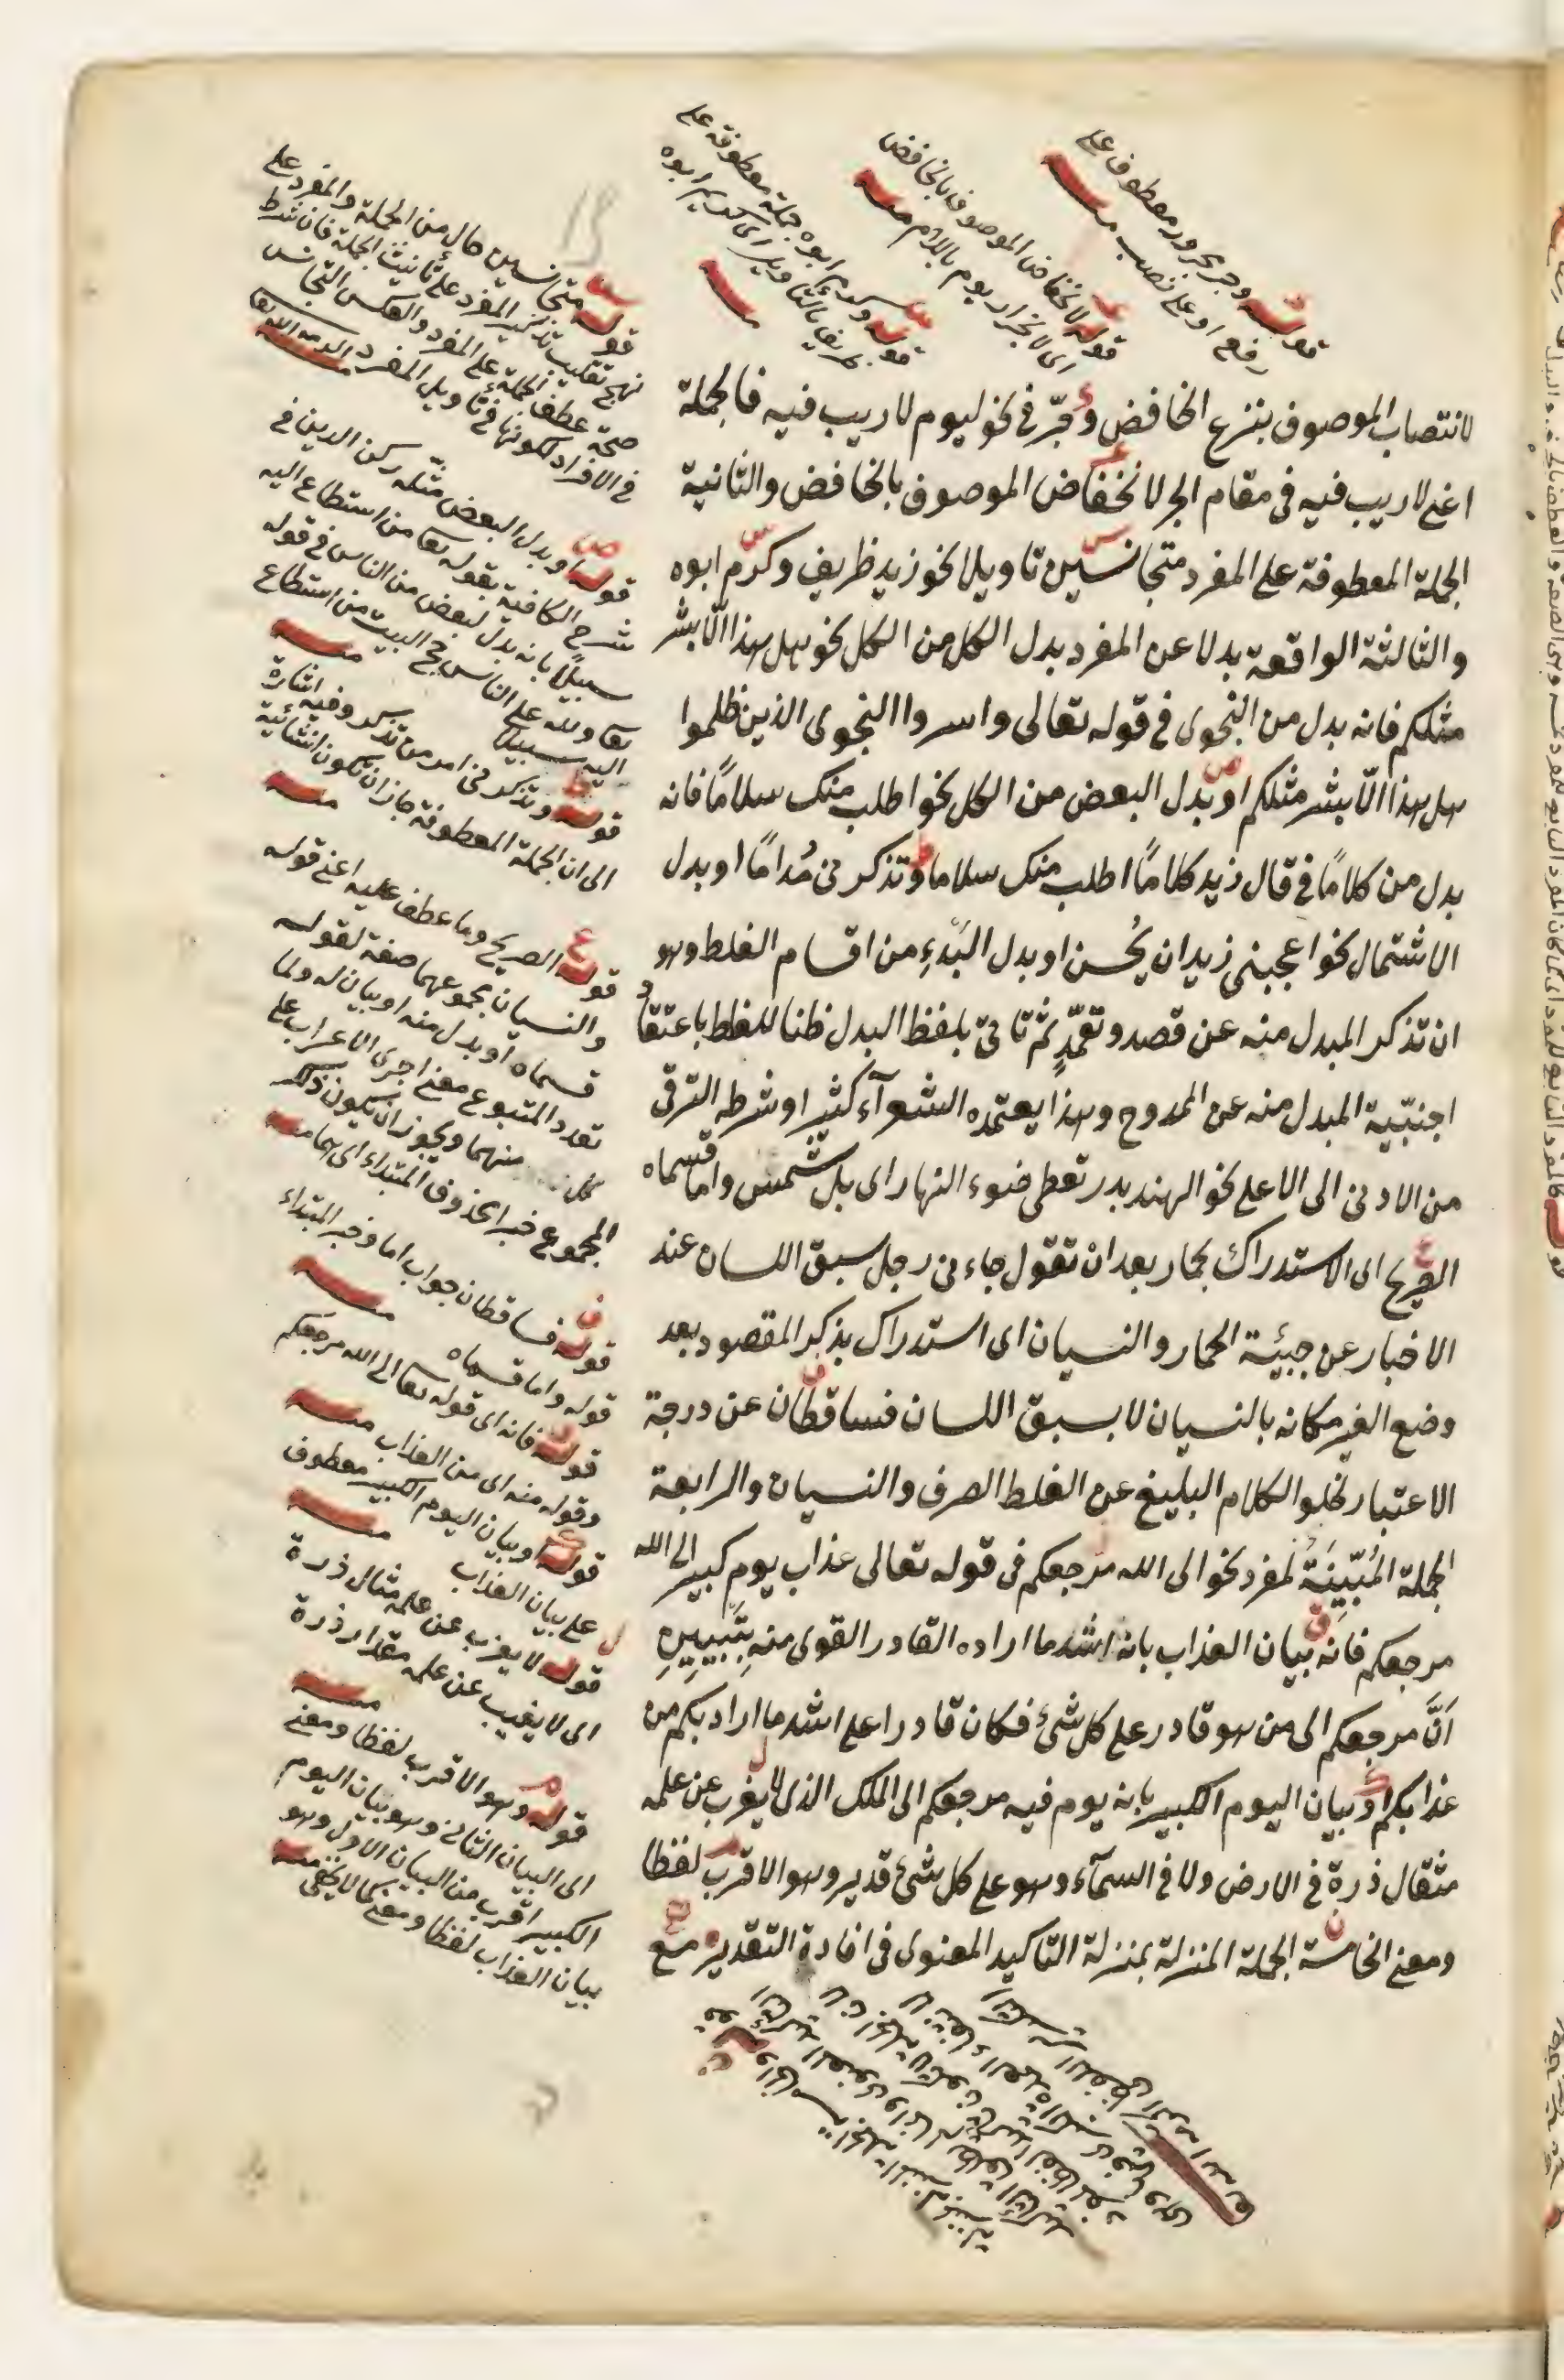 قوله وجر مجرور معطوف على
رفع او على نصب منه
قوله لانخفاض الموصوف بالخافض
اى لانجرار يوم باللام منه
قوله وكرم ابوه جملة معطوفة على
ظريف بالتاويل اى كريم ابوه
لانتصاب الموصوف بنزع الخافض وجرّ فى نحو ليوم لاريب فيه فالجملة
اعنى لاريب فيه فى مقام الجر لانخفاض الموصوف بالخافض والثانية
الجملة المعطوفة على المفرد متجانسين تاويلا نحو زيد ظريف وكرّم ابوه
والثالثة الواقعة بدلا عن المفرد بدل الكل من الكل نحو هل هذا الّا بشر
مثلكم فانه بدل من النجوى فى قوله تعالى واسروا النجوى الذين ظلموا
هل هذا الّا بشر مثلكم او بدل البعض من الكل نحو اطلب منك سلامًا فانه
بدل من كلامًا فى قال زيد كلامًا اطلب منك سلاما وتذكر نى مُدامًا او بدل
الاشتمال نحو اعجبنى زيد ان يُحسن او بدل البَدءِ من اقسام الغلط وهو
ان تذكر المبدل منه عن قصد وتعمّدٍ ثم تاتىّ بلفظ البدل ظنا للغلط باعتقاد
اجنبّية المبدل منه عن الممدوح وهذا يعتمده الشعرآء كثيرا وشرطه الترقى
من الادنى الى الاعلى نحو الهند بدر تعطى ضوء النهار اى بل شمس واما قسماه
الصريح اى الاستدراك بحمار بعد انْ تقول جاءنى رجل سبق اللسان عند
الاخبار عن جيئة الحمار والنسيان اى استدراك بذكر المقصود بعد
وضع الغير مكانه بالنسيان لا بسبق اللسان فساقطان عن درجة
الاعتبار لخلو الكلام البليغ عن الغلط الصرف والنسيان والرابعة
الجملة المُبيِّنَةُ لمفرد نحو الى الله مرجعكم فى قوله تعالى عذاب يوم كبير الى الله
مرجعكم فانه بيان العذاب بانه اشد ما اراده القادر القوى منه بتَبْيِينِ
اَنَّ مرجعكم الى من هو قادر على كل شئ فكان قادرا على اشد ما اراد بكم من
عذابكم او بيان اليوم الكبير بانه يوم فيه مرجعكم الى الملك الذى لا يغرب عن علمه
مثقال ذرة فى الارض ولا فى السمآء وهو على كل شئ قدير وهو الاقرب لفظا
ومعنى الخامسة الجملة المنزلة بمنزلة التاكيد المعنوى فى افادة التقدير مع
قوله متجانسين حال من الجملة والمفرد على
نهج تغليب تذكير المفرد على تأنيث الجملة فان شرط
صحة عطف الجملة على المفرد والعكس التجانس
فى الافراد لكونها فى تأويل المفرد
قوله او بدل البعض مثّله ركن الدين فى
شرح الكافية بقوله تعا من استطاع اليه
سبيلاً بانه بدل لبعض من الناس فى قوله
تعا ولله على الناس حج البيت من استطاع
اليه سبيلا منه
قوله وتذكر نى امر من تذكير وفيه اشارة
الى ان الجملة المعطوفة جاز ان تكون انشائية منه
قوله الصريح وما عطف عليه اعنى قوله
والنسيان مجموعهما صفة لقوله
قسماه او بدل منه او بيان له ولما
تعدد المتبوع معنى اجرى الاعراب على
كل منهما ويجوز ان يكون ذلك
المجموع خبرا محذوف المبتداء اى هما منه
قوله فساقطان جواب اما وخبر المبتداء
قوله واما قسماه منه
قوله فانه اى قوله تعا الى الله مرجعكم
وقوله منه اى من العذاب منه
قوله او بيان اليوم الكبير معطوف
على بيان العذاب منه
قوله لا يغرب عن علمه مثال ذرة
اى لا يغيب عن علمه مقدار ذرة منه
قوله وهو الاقرب لفظا ومعنى
اى البيان الثانى وهو بيان اليوم
الكبير اقرب من البيان الاول وهو
بيان العذاب لفظا ومعنى كما لا يخفى منه